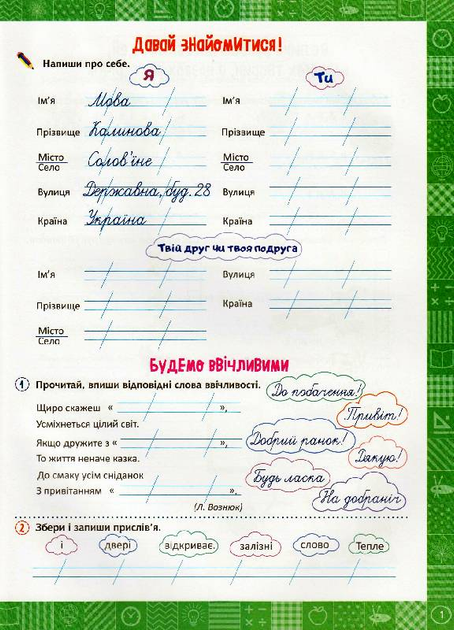 Давай знайомитися!
Напиши про себе.
Я
Ти
Ім'я Мова Ім'я
Прізвище Калинова Прізвище
Місто
Село Солов'їне Місто
Село
Вулиця Державна, буд. 28 Вулиця
Країна Україна Країна
Твій друг чи твоя подруга
Ім'я Вулиця
Прізвище Країна
Місто
Село
Будемо ввічливими
1 Прочитай, впиши відповідні слова ввічливості.
Щиро скажеш « »,
Усміхнеться цілий світ.
Якщо дружите з « »,
То життя неначе казка.
До смаку усім сніданок
З привітанням « ».
(Л. Вознюк)
До побачення!
Привіт!
Добрий ранок!
Дякую!
Будь ласка
На добраніч
2 Збери і запиши прислів'я.
і двері відкриває. залізні слово Тепле
1